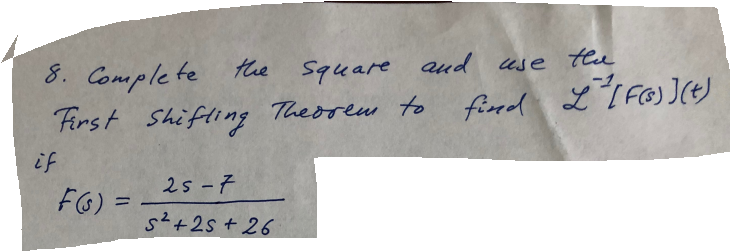 8. Complete the square and use the
First Shifting Theorem to find ℒ⁻¹[F(s)](t)
if
F(s) = (2s - 7)/(s² + 2s + 26)